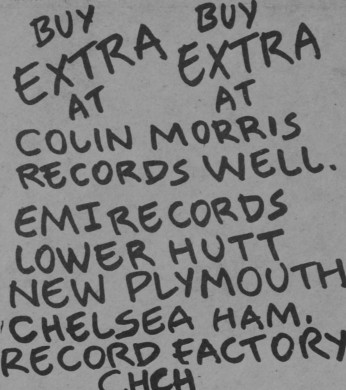 BUY BUY
EXTRA EXTRA
AT AT
COLIN MORRIS
RECORDS WELL.
EMI RECORDS
LOWER HUTT
NEW PLYMOUTH
CHELSEA HAM.
RECORD FACTORY
CHCH